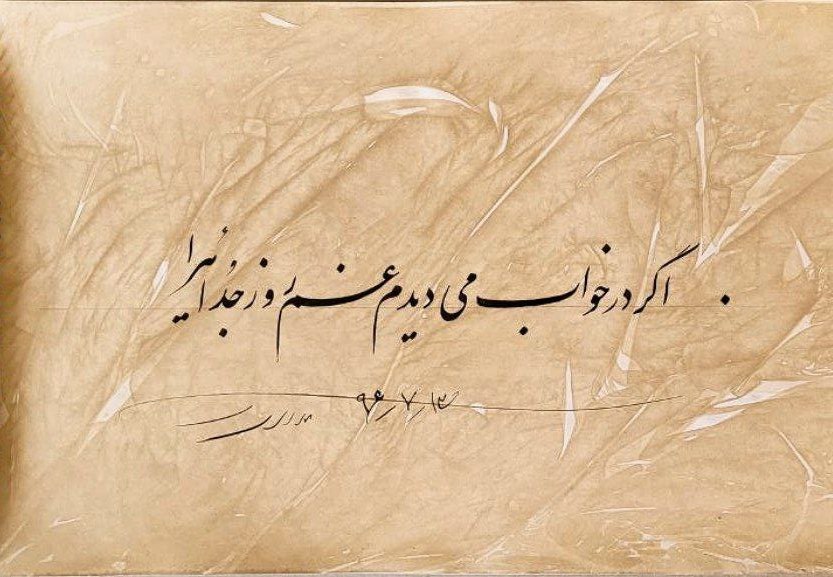 اگر در خواب می دیدم غم روز جدُائیرا
۹۶٫۷٫۱۳